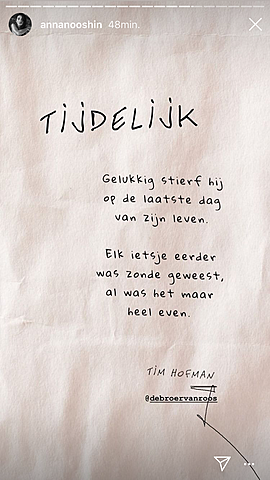 annanooshin 48min.
TIJDELIJK
Gelukkig stierf hij
op de laatste dag
van zijn leven.
Elk ietsje eerder
was zonde geweest,
al was het maar
heel even.
TIM HOFMAN
@debroervanroos